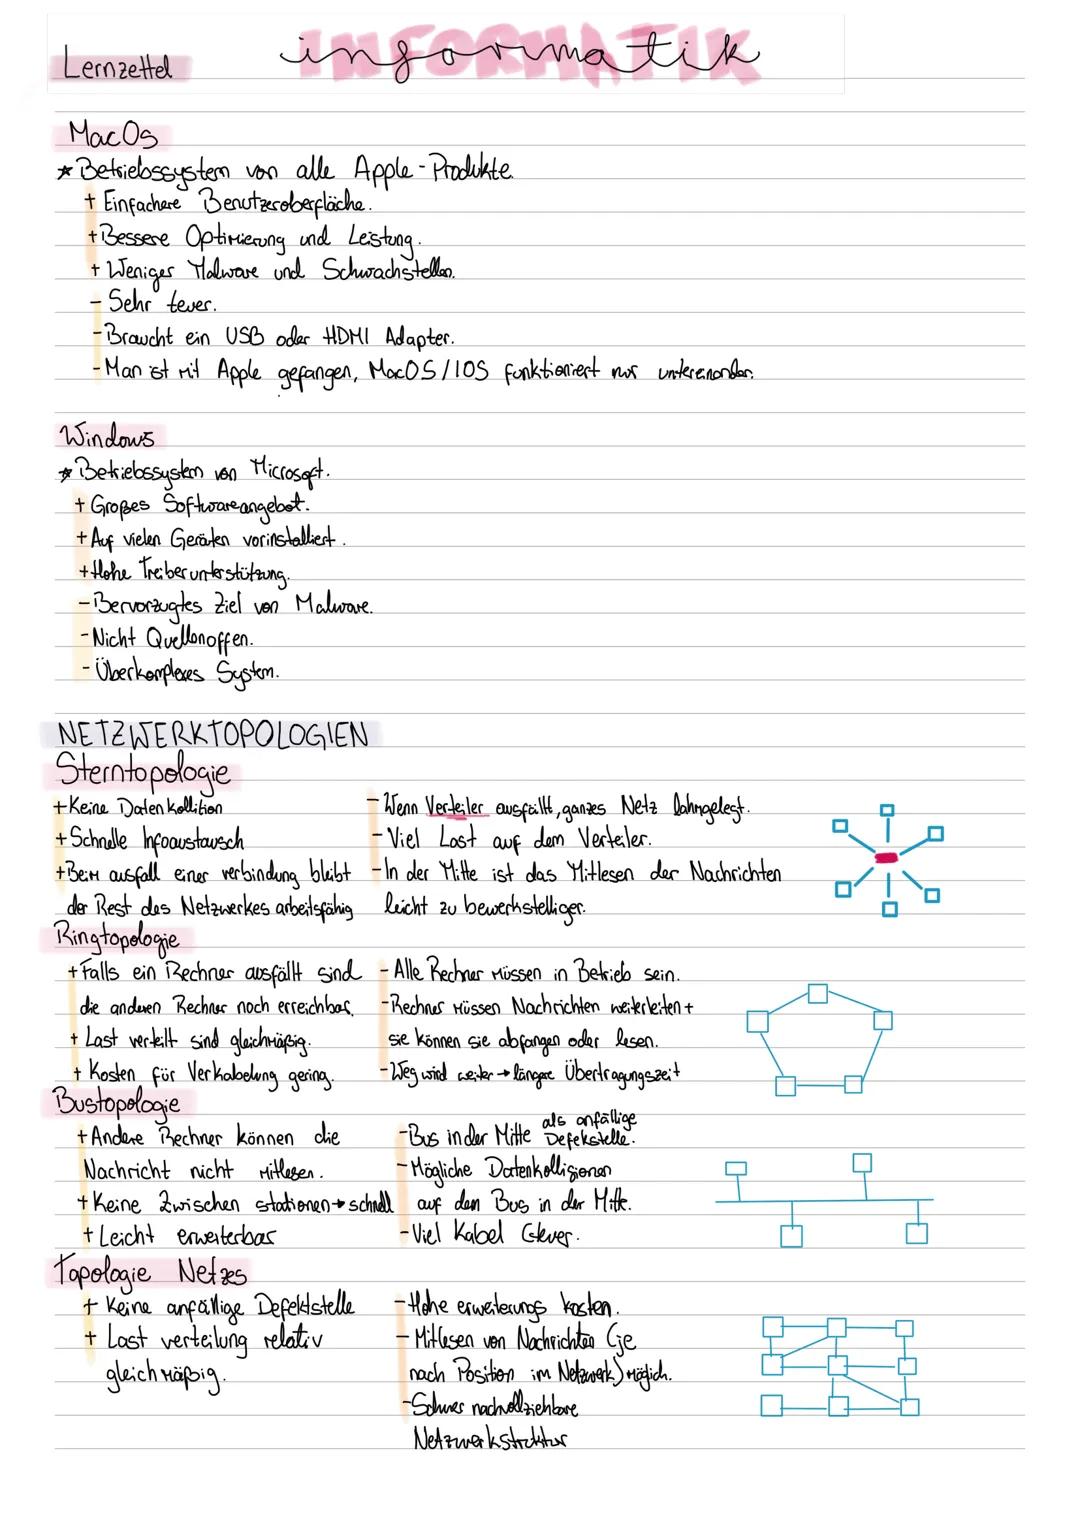 Lernzettel
INFORMATIK
informatik
MacOs
* Betriebssystem von alle Apple-Produkte.
+ Einfachere Benutzeroberfläche.
+ Bessere Optimierung und Leistung.
+ Weniger Malware und Schwachstellen.
- Sehr teuer.
- Braucht ein USB oder HDMI Adapter.
- Man ist mit Apple gefangen, MacOS/IOS funktioniert nur untereinander.
Windows
* Betriebssystem von Microsoft.
+ Großes Softwareangebot.
+ Auf vielen Geräten vorinstalliert.
+ Hohe Treiberunterstützung.
- Bervorzugtes Ziel von Malware.
- Nicht Quellenoffen.
- Überkomplexes System.
NETZWERKTOPOLOGIEN
Sterntopologie
+ Keine Datenkollition
+ Schnelle Infoaustausch
+ Beim ausfall einer verbindung bleibt
der Rest des Netzwerkes arbeitsfähig
- Wenn Verteiler ausfällt, ganzes Netz lahmgelegt.
- Viel Last auf dem Verteiler.
- In der Mitte ist das Mitlesen der Nachrichten
leicht zu bewerkstelligen.
Ringtopologie
+ Falls ein Rechner ausfällt sind
die anderen Rechner noch erreichbar.
+ Last verteilt sind gleichmäßig.
+ Kosten für Verkabelung gering.
- Alle Rechner müssen in Betrieb sein.
- Rechner müssen Nachrichten weiterleiten +
sie können sie abfangen oder lesen.
- Weg wird weiter → längere Übertragungszeit
Bustopologie
+ Andere Rechner können die
Nachricht nicht mitlesen.
+ Keine Zwischen stationen → schnell
+ Leicht erweiterbar
- Bus in der Mitte als anfällige
Defekstelle.
- Mögliche Datenkolligionen
auf den Bus in der Mitte.
- Viel Kabel
Topologie Netzes
+ Keine anfällige Defektstelle
+ Last verteilung relativ
gleichmäßig.
- Hohe erweiterungs kosten.
- Mitlesen von Nachrichten (je
nach Position im Netzwerk) möglich.
- Schwer nachvollziehbare
Netzwerkstruktur